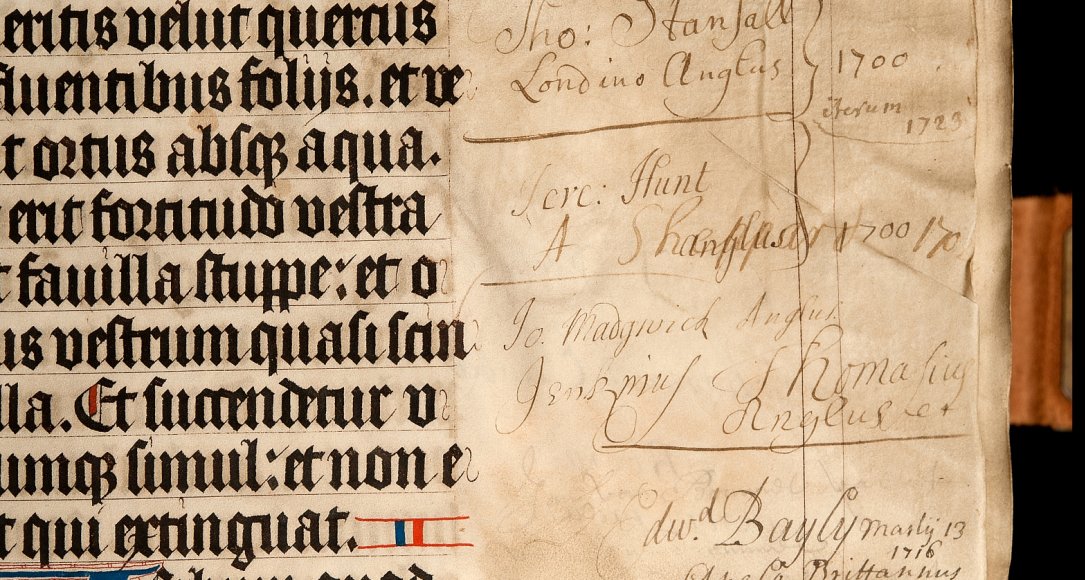 eritis velut quercus
fluentibus folijs. et ve
t ortus absq aqua.
erit fortitudo vestra
t fauilla stuppe: et o
us vestrum quasi scin
lla. Et succendetur v
umq simul: et non e
t qui extinguat.
Tho: Stansall
Londino Anglus
1700
iterum
1723
Jere: Hunt
A
1700 170
Jo. Madgwick Anglus
Thomasius
Anglus et
dw.d Bayly Martij 13
1716
Anglo Brittannus